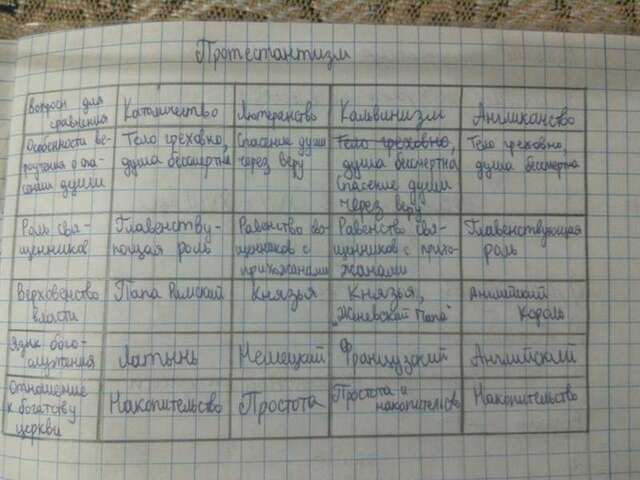 Протестантизм
Вопросы для сравнения | Католичество | Лютеранство | Кальвинизм | Англиканство
Особенности вероучения о спасении души | Тело греховно, душа бессмертна | Спасение души через веру | Тело греховно, душа бессмертна Спасение души через веру | Тело греховно, душа бессмертна
Роль священников | Главенствующая роль | Равенство священников с прихожанами | Равенство священников с прихожанами | Главенствующая роль
Верховенство власти | Папа Римский | Князья | Князья, "Женевский Папа" | Английский Король
Язык богослужения | Латынь | Немецкий | Французский | Английский
Отношение к богатству церкви | Накопительство | Простота | Простота и накопительство | Накопительство